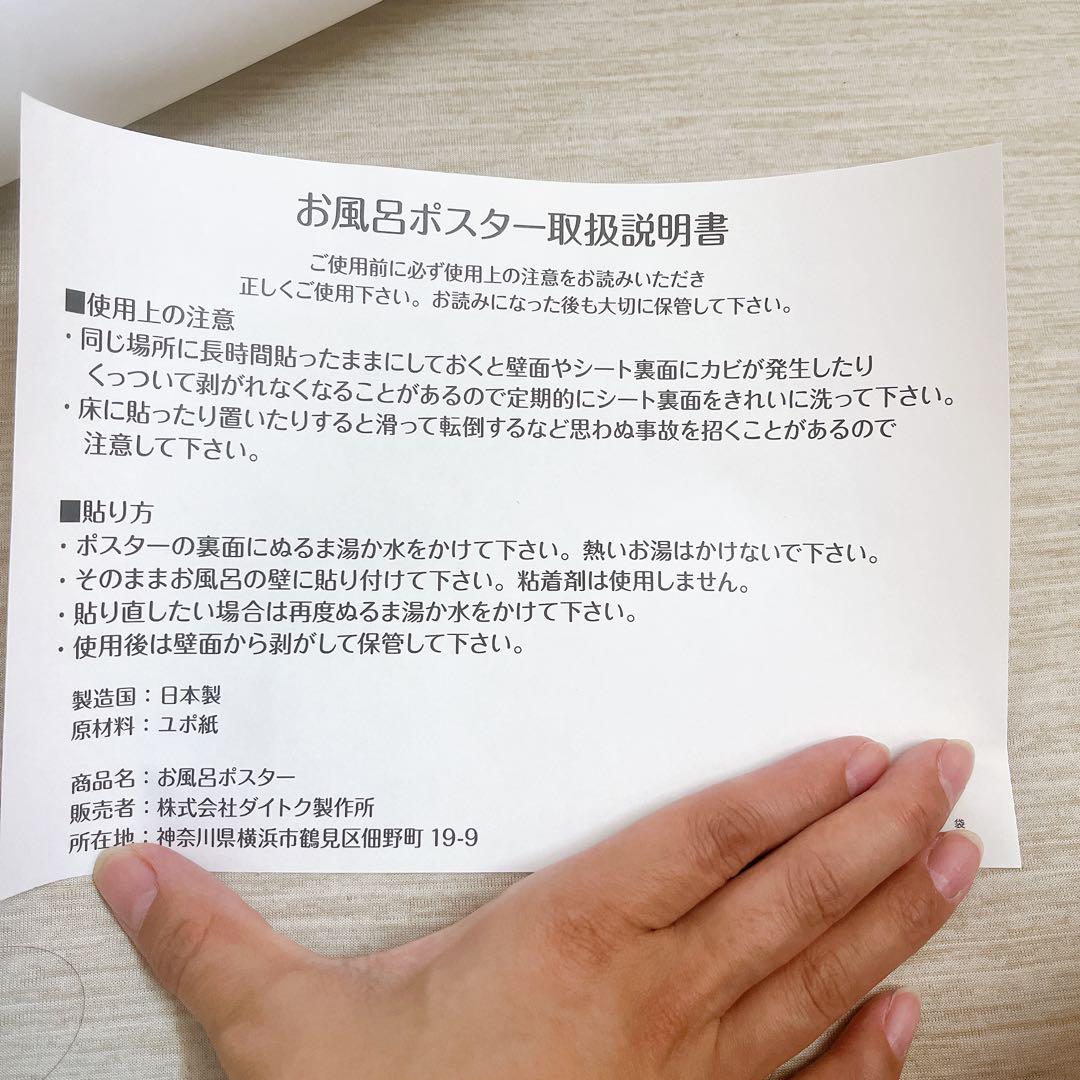 お風呂ポスター取扱説明書
ご使用前に必ず使用上の注意をお読みいただき
正しくご使用下さい。お読みになった後も大切に保管して下さい。
■使用上の注意
・同じ場所に長時間貼ったままにしておくと壁面やシート裏面にカビが発生したり
くっついて剥がれなくなることがあるので定期的にシート裏面をきれいに洗って下さい。
・床に貼ったり置いたりすると滑って転倒するなど思わぬ事故を招くことがあるので
注意して下さい。
■貼り方
・ポスターの裏面にぬるま湯か水をかけて下さい。熱いお湯はかけないで下さい。
・そのままお風呂の壁に貼り付けて下さい。粘着剤は使用しません。
・貼り直したい場合は再度ぬるま湯か水をかけて下さい。
・使用後は壁面から剥がして保管して下さい。
製造国：日本製
原材料：ユポ紙
商品名：お風呂ポスター
販売者：株式会社ダイトク製作所
所在地：神奈川県横浜市鶴見区佃野町 19-9
袋